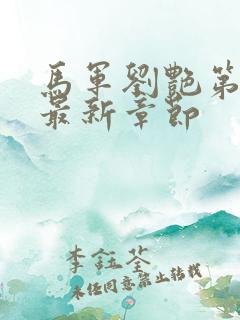 馬軍劉艷第
最新章節
李鈺荃
未經同意禁止轉載